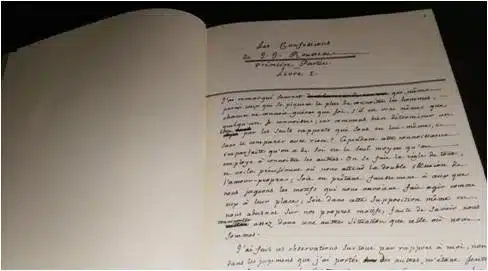 Les Confessions
de J. J. Rousseau
Première Partie
Livre 1.
J'ai remarqué souvent que, même
parmi ceux qui se piquent le plus de connoitre les hommes,
chacun ne connoit guères que soi, s'il est vrai même que
quelqu'un se connoisse; car comment bien déterminer un
être par les seuls rapports qui sont en lui-même, et
sans le comparer avec rien? Cependant cette connoissance
imparfaite qu'on a de soi est le seul moyen qu'on
employe à connoitre les autres. On se fait la règle de tout,
et voila précisément où nous attend la double illusion de
l'amour-propre; soit en prêtant faussement à ceux que
nous jugeons les motifs qui nous auroient fait agir comme
eux à leur place; soit dans cette supposition même, en
nous abusant sur nos propres motifs, faute de savoir nous
transporter assez dans une autre situation que celle où nous
sommes.
J'ai fait ces observations surtout par rapport à moi, non
dans les jugemens que j'ai portés des autres, m'étant